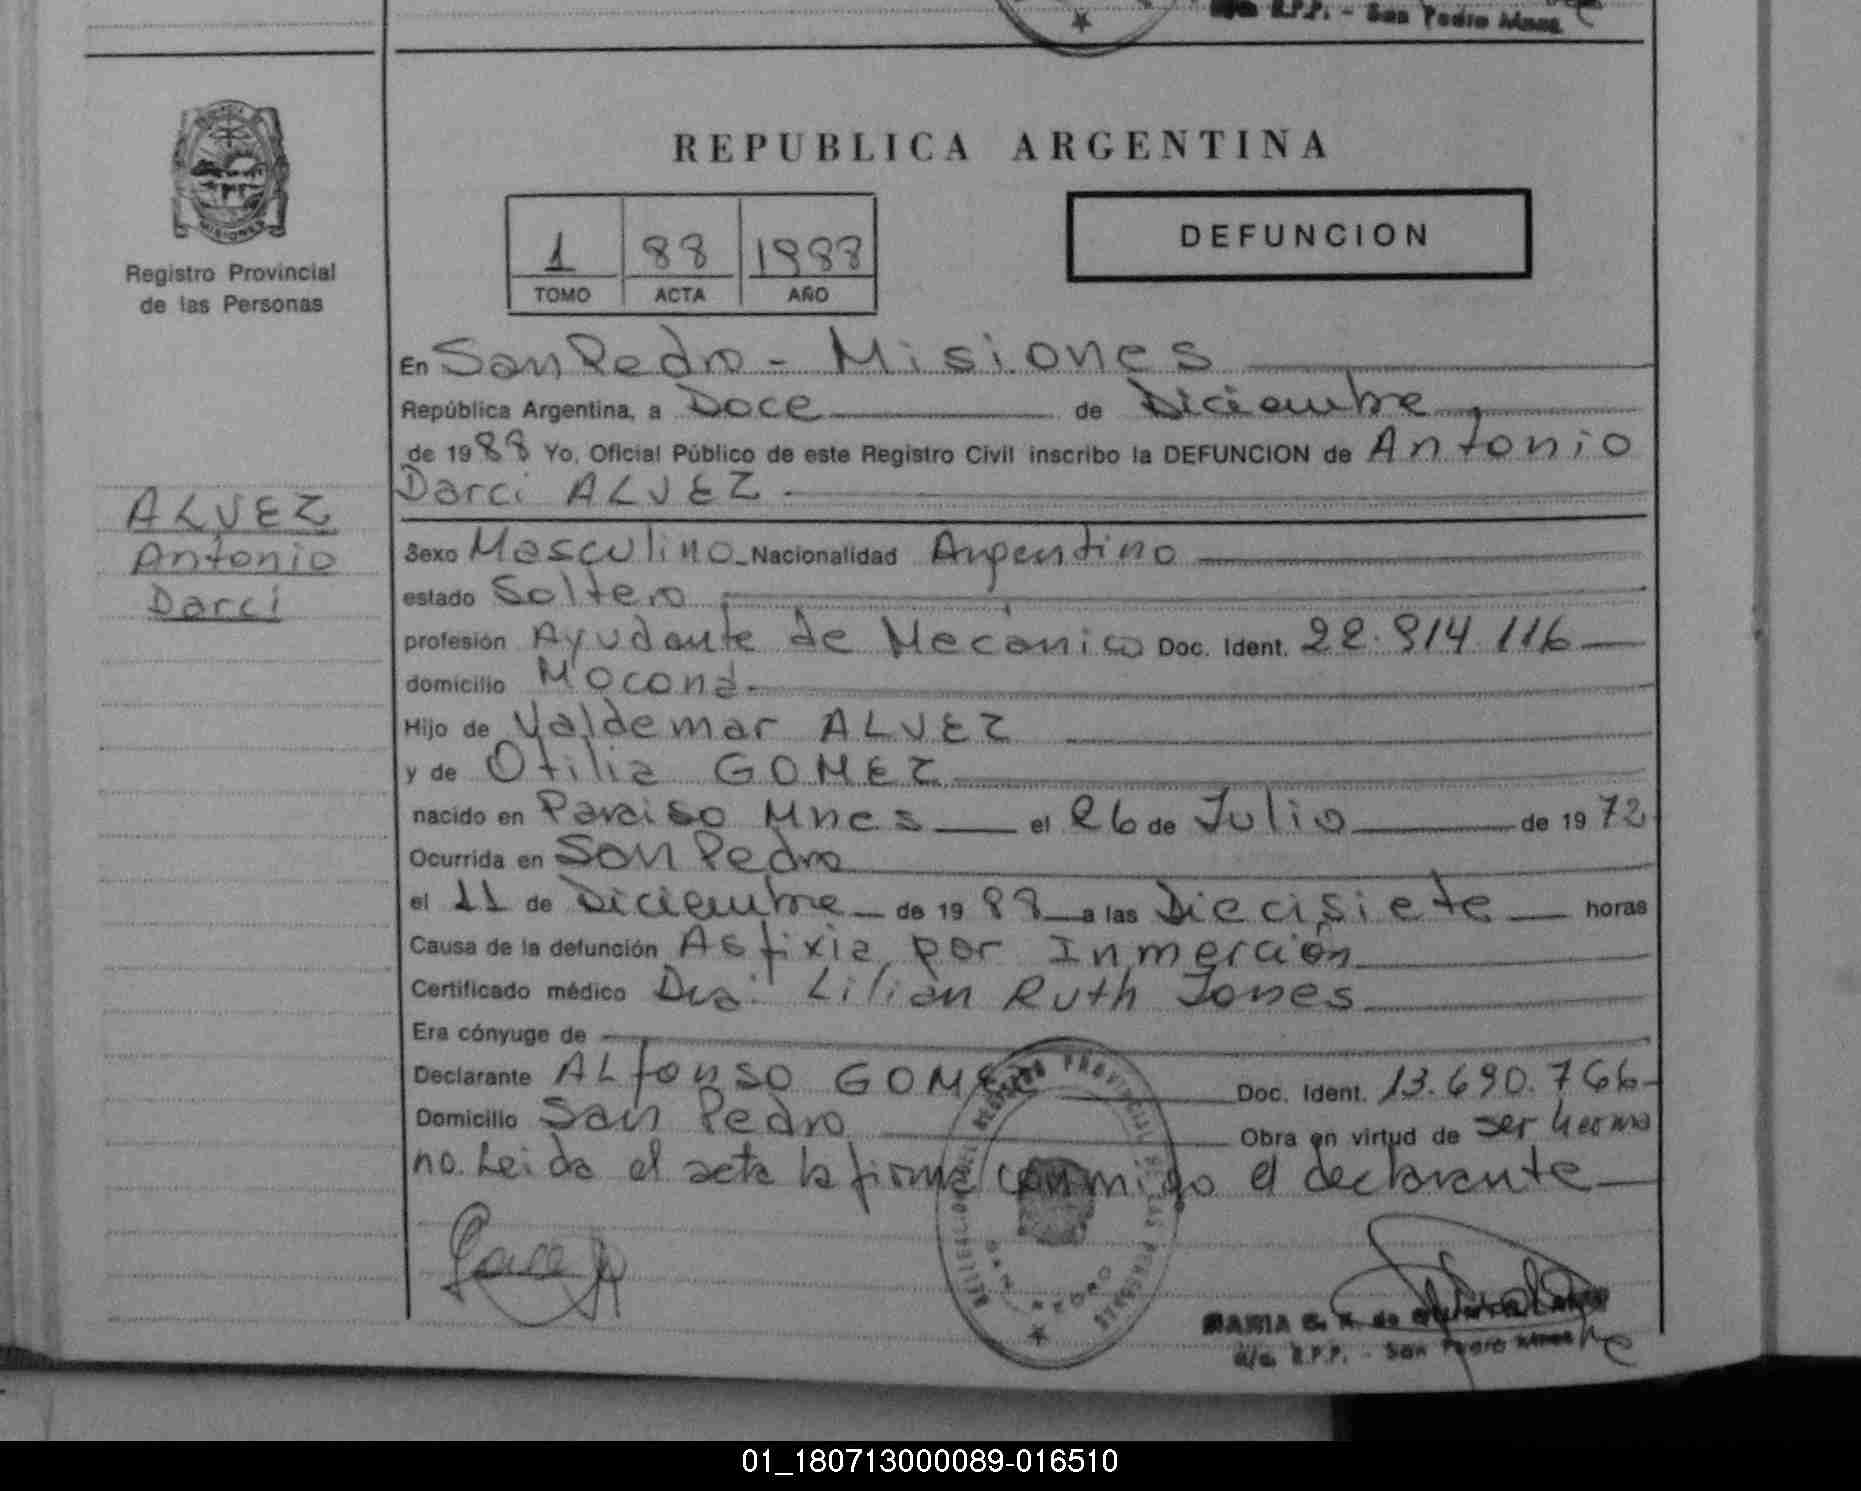 R.P.P. - San Pedro Mnes
REPUBLICA ARGENTINA
PROVINCIA
MISIONES
Registro Provincial
de las Personas
1 88 1988
TOMO ACTA AÑO
DEFUNCION
En San Pedro - Misiones
República Argentina, a Doce de Diciembre
de 1988 Yo, Oficial Público de este Registro Civil inscribo la DEFUNCION de Antonio
Darci ALVEZ
ALVEZ
Antonio
Darci
Sexo Masculino Nacionalidad Argentino
estado Soltero
profesión Ayudante de Mecánico Doc. Ident. 22.914.116
domicilio Mocona
Hijo de Valdemar ALVEZ
y de Otilia GOMEZ
nacido en Paraiso Mnes el 26 de Julio de 1972
Ocurrida en San Pedro
el 11 de Diciembre de 1988 a las Diecisiete horas
Causa de la defunción Asfixia por Inmerción
Certificado médico Dra. Lilian Ruth Jones
Era cónyuge de
Declarante ALfonso GOMEZ Doc. Ident. 13.690.766
Domicilio San Pedro Obra en virtud de ser herma
no. Leida el acta la firma conmigo el declarante
DELEGACION DEL REGISTRO PROVINCIAL DE LAS PERSONAS
SAN PEDRO
MARIA de
R.P.P. - San Pedro Mnes
01_180713000089-016510